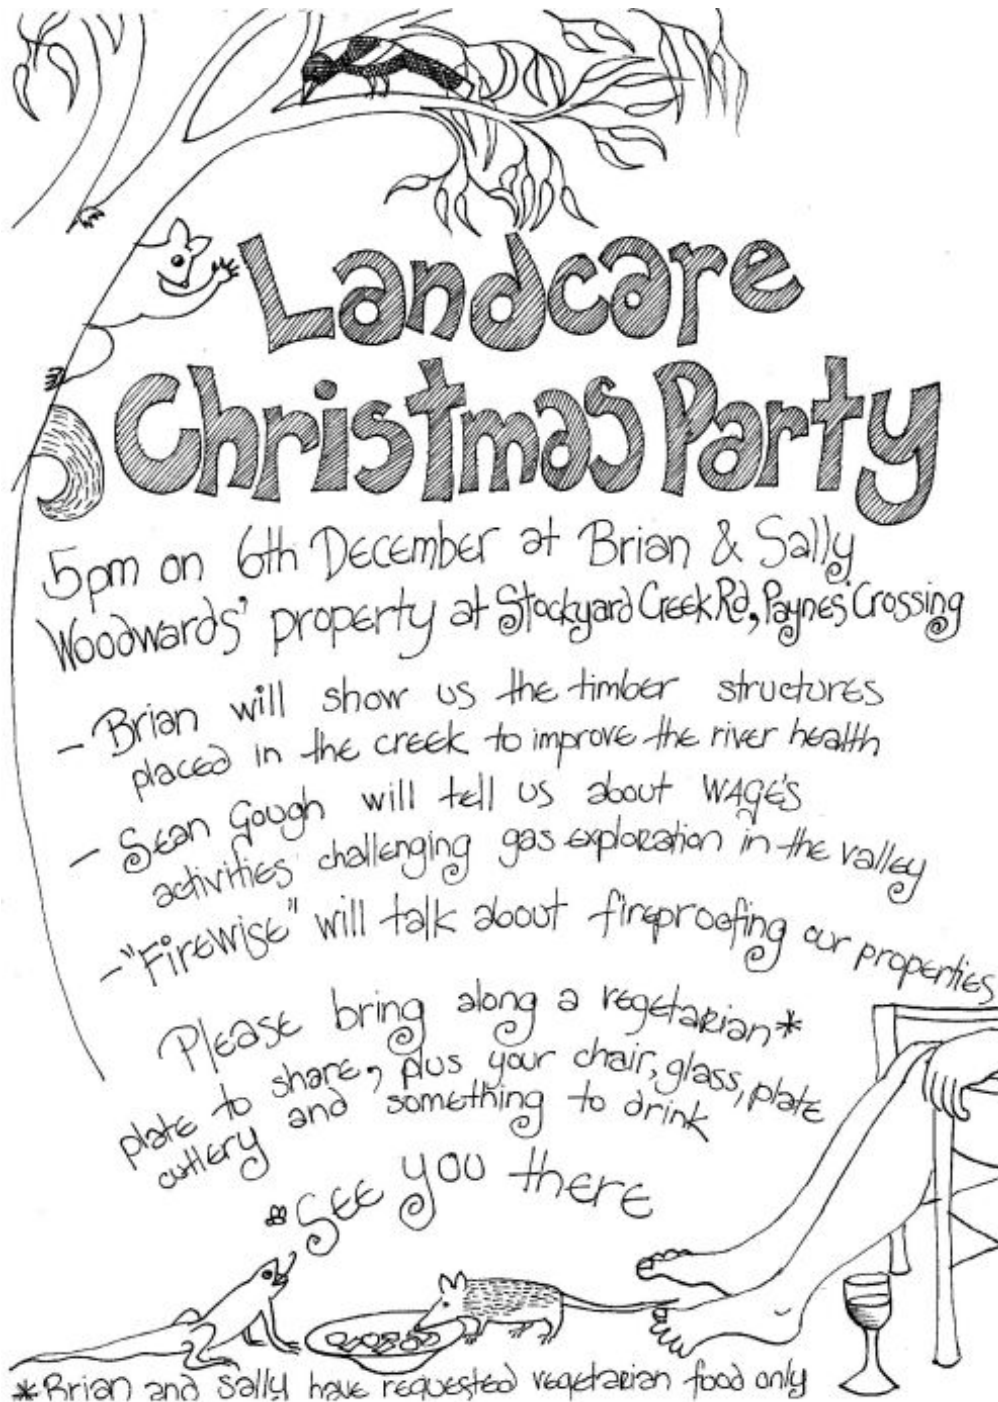 Landcare
Christmas Party
5pm on 6th December at Brian & Sally
Woodwards' property at Stockyard Creek Rd, Paynes Crossing
- Brian will show us the timber structures
placed in the creek to improve the river health
- Sean Gough will tell us about WAGE's
activities challenging gas exploration in the valley
- "Firewise" will talk about fireproofing our properties
Please bring along a vegetarian*
plate to share, plus your chair, glass, plate
cutlery and something to drink
See you there
* Brian and Sally have requested vegetarian food only